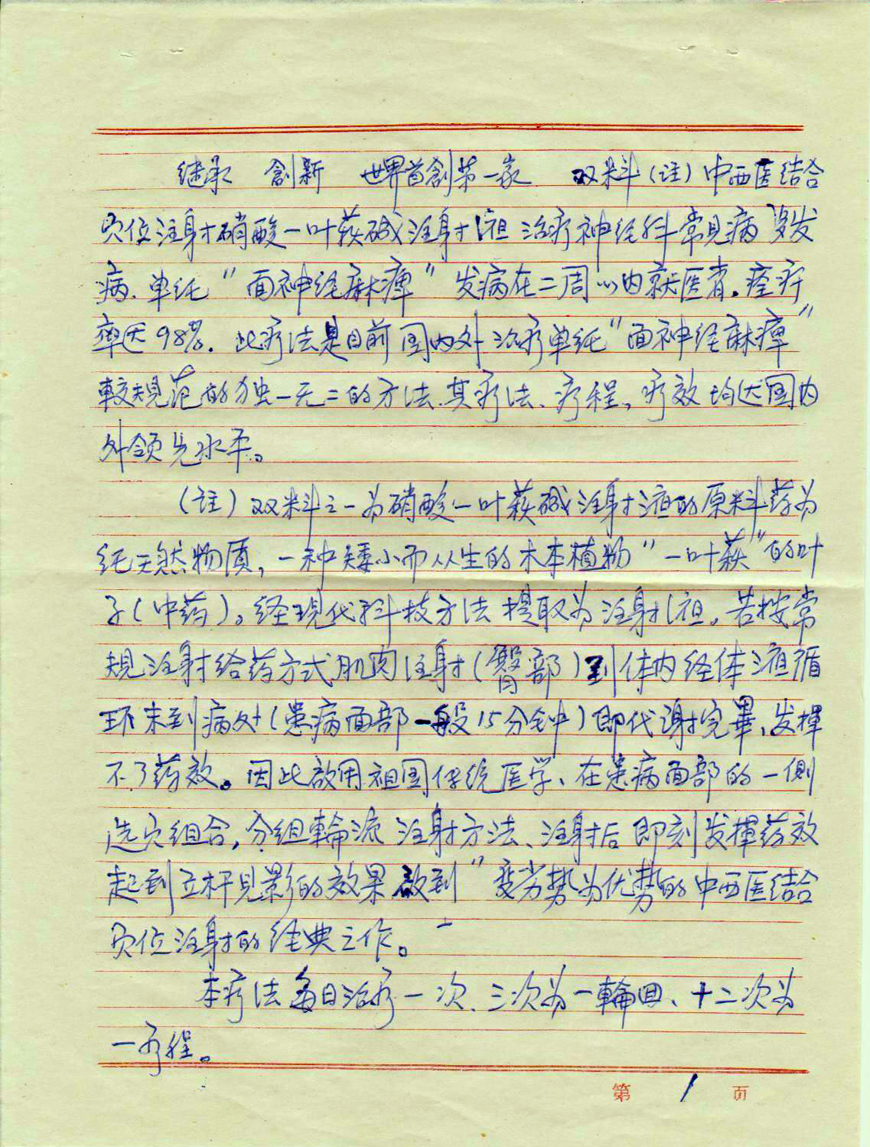 继承 創新 世界首創第一家 双料(註)中西医结合
穴位注射硝酸一叶萩碱注射液治疗神经科常見病多发
病、单纯"面神经麻痺"发病在二周以内就医者。痊疗
率达98%。此疗法是目前国内外治疗单纯"面神经麻痺"
較規范的独一无二的方法、其疗法、疗程、疗效均达国内
外领先水平。
(註)双料之一为硝酸一叶萩碱注射液的原料药为
纯天然物质,一种矮小而从生的木本植物"一叶萩"的叶
子(中药)。经現代科技方法提取为注射液。若按常
規注射给药方式肌肉注射(臀部)到体内经体液循
环未到病处(患病面部一般15分钟)即代谢完畢、发揮
不了药效。因此啟用祖国传统医学、在患病面部的一側
选穴组合,分组輪流注射方法、注射后即刻发揮药效
起到立杆見影的效果 做到"变劣势为优势的中西医结合
穴位注射的经典之作。"
本疗法每日治疗一次、三次为一輪回、十二次为
一疗程。
第 1 页